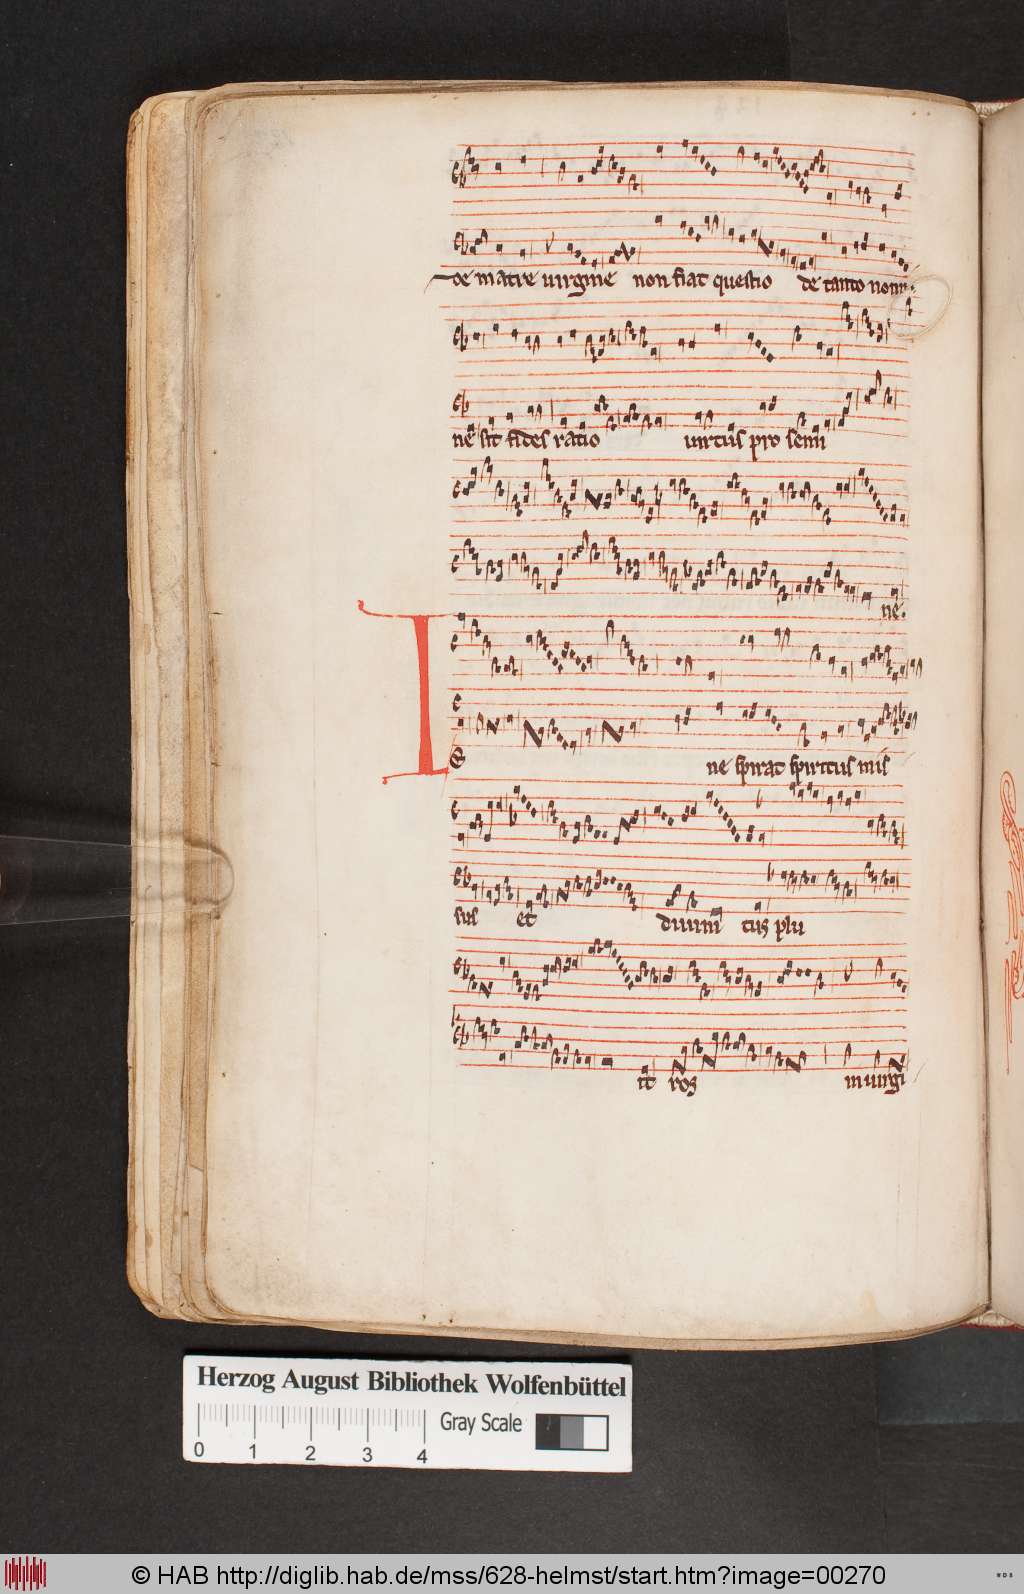 de matre virgine non fiat questio de tanto nomi.
ne sit fides ratio virtus pro semi
ne.
I
E ne spirat spiritus mis
sus et divini tus plu
it ros in virgi
Herzog August Bibliothek Wolfenbüttel
Gray Scale
0 1 2 3 4
© HAB http://diglib.hab.de/mss/628-helmst/start.htm?image=00270